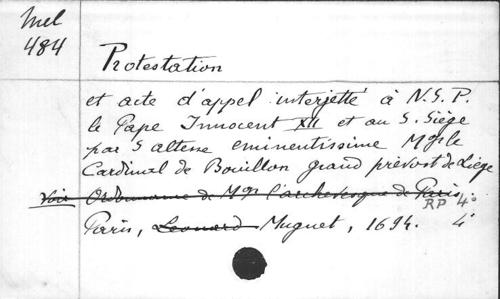 Mel
484
Protestation
et acte d'appel interjetté à N.S.P.
le Pape Innocent XII et au S. Siège
par S altesse eminentissime Mgr le
Cardinal de Bouillon grand prévost de Liège
voir Ordonnance de Mgr l'archevesque de Paris
RP 4°
Paris, Leonard Muguet, 1694. 4°